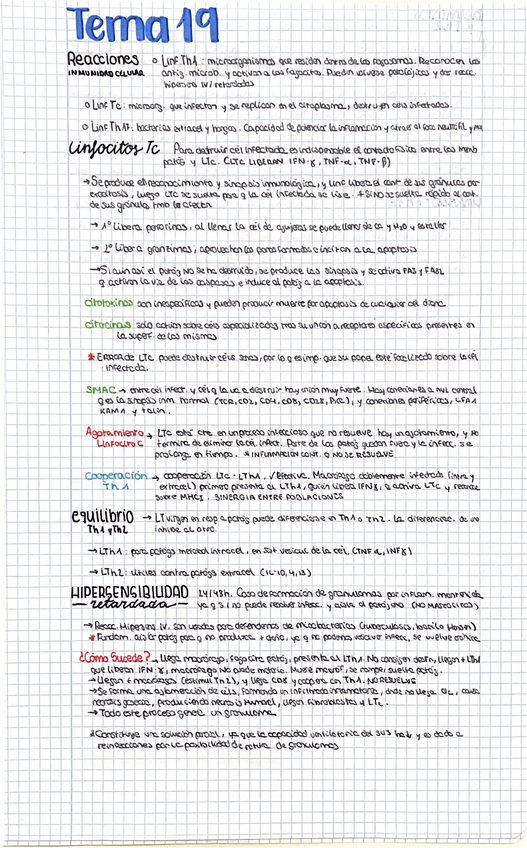 Tema 19
Reacciones
INMUNIDAD CELULAR
o Linf Th1: microorganismos que residen dentro de los fagosomas. Reconocen los
antíg. microb. y activan a los fagocitos. Pueden volverse patológicos y dar reacc.
hipersens IV/ retardadas
o Linf Tc: microorg. que infectan y se replican en el citoplasma, destruyen céls infectadas.
o Linf Th17: bacterias extracel y hongos. Capacidad de potenciar la inflamación y atraer al foco neutrófil y
Linfocitos Tc
Para destruir cél infectada es indispensable el contacto físico entre las memb
patóg y LTc. (LTC LIBERAN IFN-γ, TNF-α, TNF-β)
→ Se produce el reconocimiento y sinapsis inmunológica, y linf libera el cont de sus gránulos por
exocitosis, luego LTc se suelta para q la cél infectada se lise. * Si no se suelta rápido el cont.
de sus gránulos tmb le afectan
→ 1º Libera perforinas, al llenar la cél de agujeros se puede llenar de Ca y H2O y estallar
→ 2º Libera granzimas, aprovechan los poros formados e incitan a la apoptosis
→ Si aun así el patóg no se ha destruido, se produce las sinapsis y se activa FAS y FASL
q activan la vía de las caspasas e induce al patóg a la apoptosis.
Citotoxinas son inespecíficas y pueden producir muerte por apoptosis de cualquier cél diana
Citocinas solo actúan sobre céls especializadas tras su unión a receptores específicos presentes en
la superf. de las mismas
* Error de LTc puede destruir céls sanas, por lo q es imp. que su papel esté focalizado sobre la cél
infectada.
SMAC → entre cél infect. y cél q la va a destruir hay unión muy fuerte. Hay conexiones a nivel central
q es la sinapsis inm. formal (TCR, CD2, CD4, CD8, CD28, PKC), y conexiones periféricas, LFA1
ICAM1 y talin.
Agotamiento
Linfocito C
→ LTc está cte en un proceso infeccioso que no resuelve hay un agotamiento, y no
termina de eliminar la cél. infect. Parte de los patóg quedan fuera y la infecc. se
prolonga en tiempo. * INFLAMACIÓN CONT. O NO SE RESUELVE
Cooperación
Th1
→ cooperación LTc - LTh1, + efectiva. Macrófago doblemente infectado (intra y
extracel) primero presenta al LTh1, quien libera IFNγ, q activa LTc y reconoce
sobre MHCI. SINERGIA ENTRE POBLACIONES
equilibrio
Th1 y Th2
→ LT virgen en resp a patóg puede diferenciarse en Th1 o Th2. La diferenciac. de uno
inhibe al otro.
→ LTh1: para patógs intracel, en vesicul de la cél. (TNFα, INFγ)
→ LTh2: útiles contra patógs extracel (IL-10, 4, 13)
HIPERSENSIBILIDAD
retardada
24/48h. Caso de formación de granulomas por inflam.
ya q S.I no puede resolver infecc. y aísla al patógeno (NO MATARLOS)
→ Reacc. Hipersens IV. son usadas para defendernos de micobacterias (tuberculosis, bacilo Hansen)
* Fundam. aislar patóg para q no produzca + daño, ya q no podemos resolver infecc, se vuelve crónica
¿Cómo Sucede? → Llega macrófago, fagocita patóg, presenta al LTh1. No consigue destru, llegan + LTh1
que liberan IFN-γ, macrófago no puede matarlo. Muere macróf, se rompe, suelta patóg.
→ Llegan + macrófagos (estimul Th2), y llega CD8 y coopera con Th1. NO RESUELVE
→ Se forma una aglomeración de céls, formando un infiltrado inflamatorio, dnd no llega O2, causa
necrosis gaseosa, produciendo necrosis tumoral, llegan fibroblastos y LTc.
→ Todo este proceso genera un granuloma
* Constituye una solución parcial, ya que la capacidad ventilatoria del sus ha ↓ y es dado a
reinfecciones por la posibilidad de rotura de granulomas